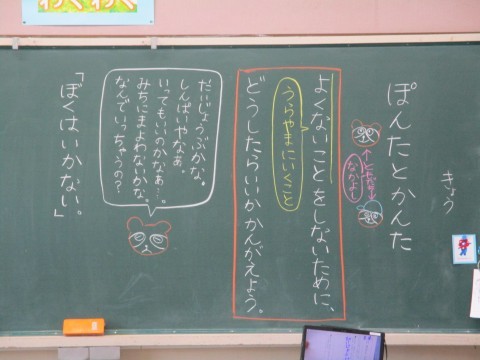 きょう
ぽんたとかんた
ともだち
なかよし
よくないことをしないために、
うらやまにいくこと
どうしたらいいかかんがえよう。
だいじょうぶかな。
しんぱいやなぁ。
いってもいいのかなぁ…。
みちにまよわないかな。
なんでいっちゃうの？
「ぼくはいかない。」